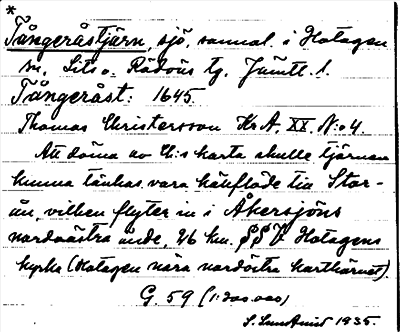 *
Tångeråstjärn, sjö, sannol. i Hotagen
sn, Lits o. Rödöns tg. Jämtl. l.
Tångeråst: 1645.
Thomas Christersson KrA. XX N:o 4.
Att döma av Ch:s karta skulle tjärnen
kunna tänkas vara källflöde till Stor-
ån, vilken flyter in i Åkersjöns
nordvästra ände, 26 km. SSV Hotagens
kyrka (Hotagen nära nordöstra karthörnet).
G. 59 (1:200.000)
1935.